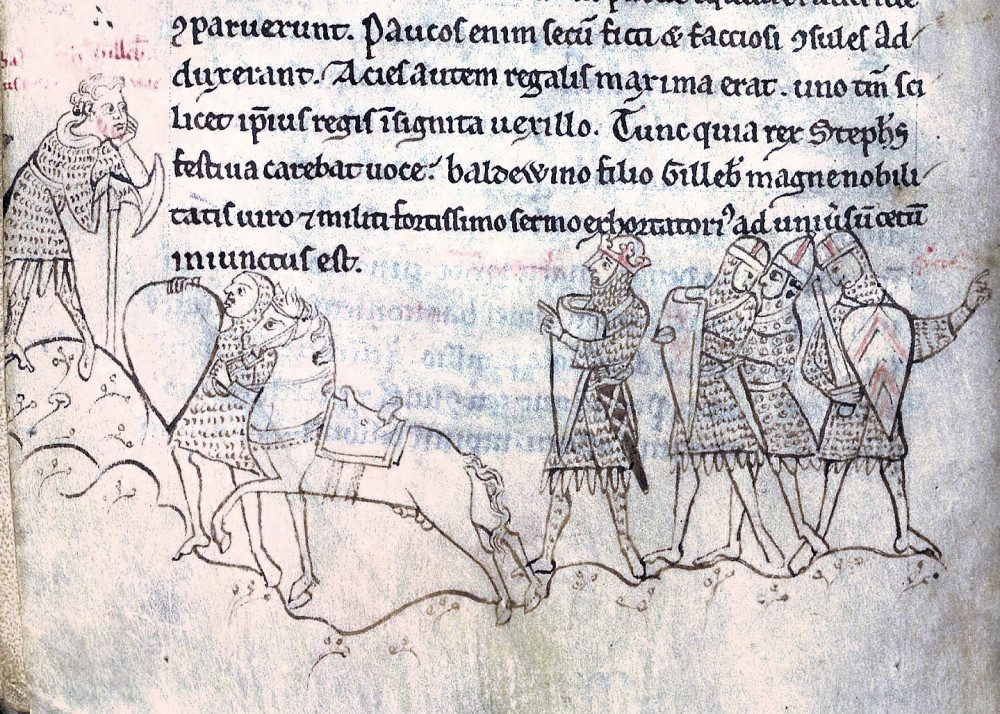 ꝯparuerunt. Paucos enim secū ficti & facciosi ꝯsules ad
duxerant. Acies autem regalis maxima erat. uno tm̄ sci
licet ip̄ius regis īsignita uexillo. Tunc quia rex Stephs
festiua carebat uoce: baldewino filio Gilleb̄ magne nobili
tatis uiro ⁊ militi fortissimo sermo exhortatori᾽ ad uniūsū cetū
iniunctus est.